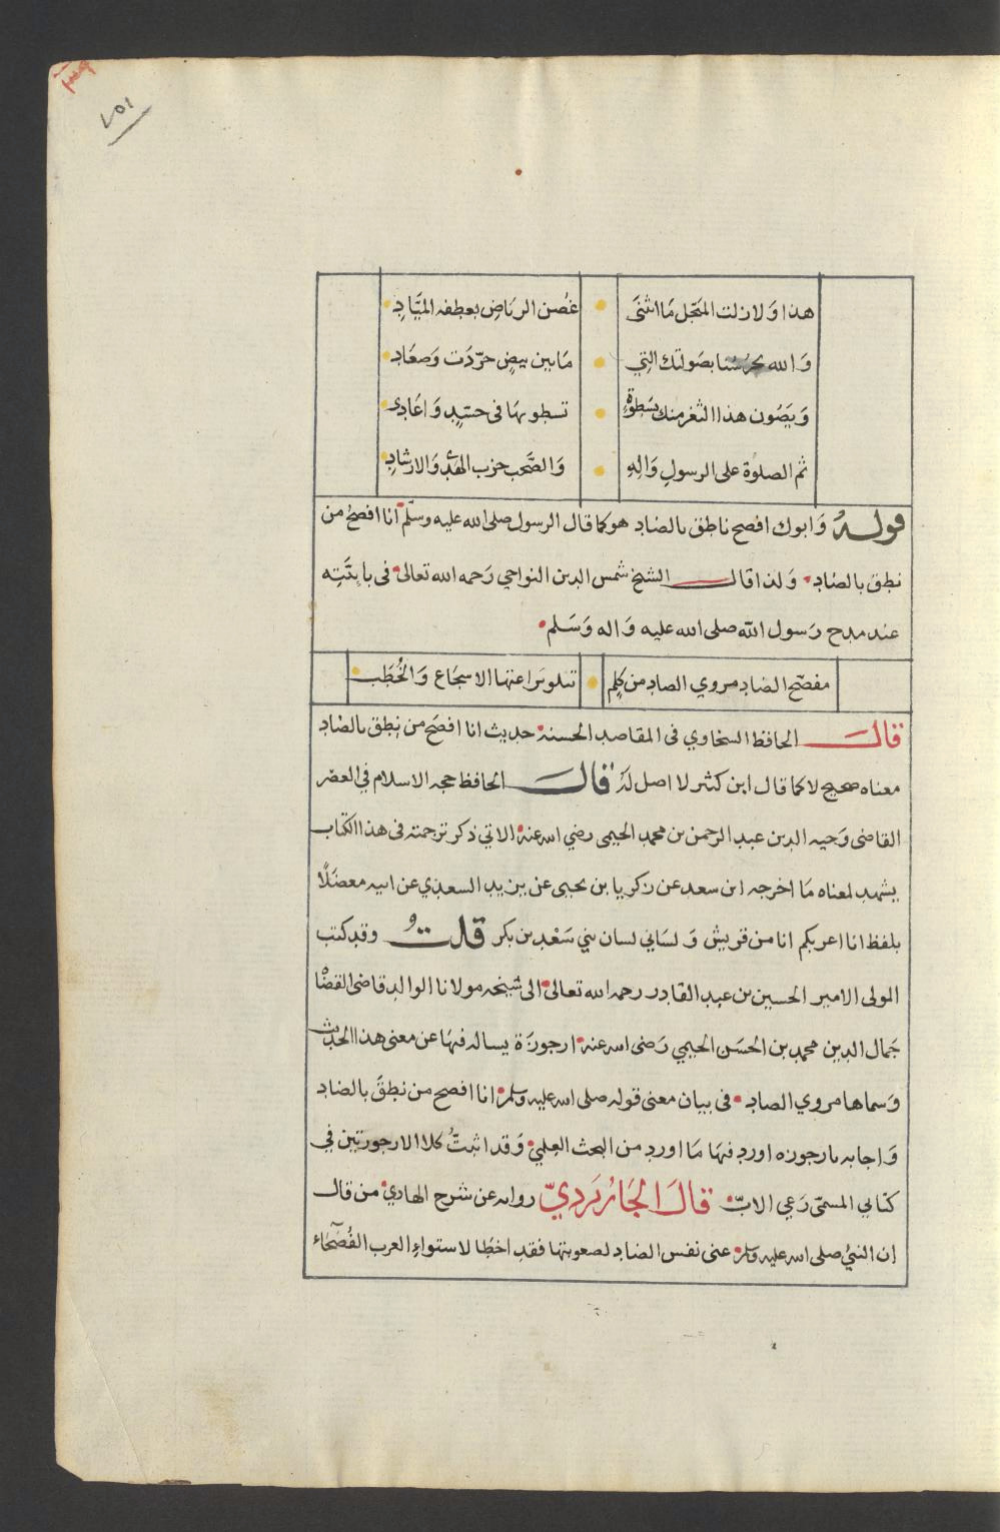 ١٥٧
هذا وَلا زلت المبَجّل مَا انثنَى غصُن الريَاض بعطفه الميَّادِ
وَالله يحرسُنا بصَولتك التِي مَا بين بيضٍ جرّدَت وَصعَادِ
وَيَصُون هذا الثغر منك بسَطوَةٍ تسطو بهَا فى حسّدٍ وَاعَادى
ثم الصلوٰة على الرسولِ وَالِهِ وَالصَّحب حزب الهدَى وَالارشادِ
قولهُ وَابوك افصح ناطق بالضاد هو كما قال الرسول صلى الله عليه وسلم انا افصحُ من
نطق بالضاد وَلذا قال الشيخ شمس الدين النواجي رَحمه الله تعالى فى بابتَّيته
عند مدح رَسول الله صلى الله عليه وَاله وَسَلم
مفصّح الضاد مروي الصادِ من كَلِم تتلو بَراعتها الاسجَاع وَالخُطَب
قالَ الحافظ السخاوي فى المقاصد الحسنة حديث انا افصَح من نطق بالضاد
معناه صحيح لا كما قال ابن كثير لا اصل لهُ قالَ الحافظ حجة الاسلام في العصر
القاضى وَجيه الدين عبد الرحمن بن محمد الحيمى رضي الله عنه الاتي ذكر ترجمته فى هذا الكتاب
يشهد لمعناه مَا اخرجه ابن سعد عن زكريا بن يحيى عن يزيد السعدي عن ابيه معضَلًا
بلفظ انا اعربكم انا من قريش وَلسَاني لسان بني سَعْد بن بكر قلتُ وقد كتب
المولى الامير الحسين بن عبد القادر رحمه الله تعالى الى شيخه مولانا الوالد قاضى القضاة
جَمال الدين محمد بن الحسَن الحيمي رَضى الله عنه ارجوزَة يساله فيهَا عن معنى هذا الحديث
وَسماها مروي الصاد فى بيان معنى قوله صلى الله عليه وسلم انا افصح من نطقَ بالضاد
وَاجابه بارجوزه اورد فيهَا مَا اورد من البحث العلمي وَقد اثبتُّ كلا الارجوزتين في
كتابي المسمّى رَعي الابّ قالَ الجَاربَرديّ روايه عن شرح الهادي من قال
ان النبيُ صلى الله عليه وسلم عنى نفس الضاد لصعوبتها فقد اخطا لاستواءِ العرب الفُصَحَاء